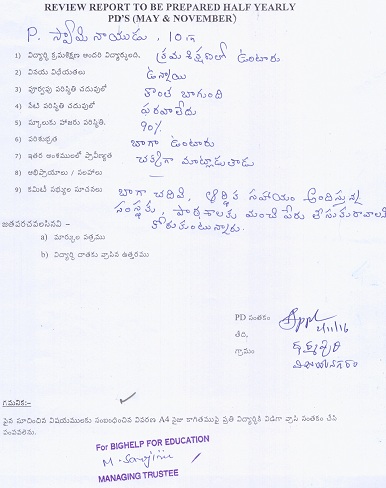 REVIEW REPORT TO BE PREPARED HALF YEARLY
PD'S (MAY & NOVEMBER)
P. స్వామి నాయుడు, 10వ
1) విద్యార్థి క్రమశిక్షణ అందరి విద్యార్థులలో, క్రమశిక్షణలో ఉంటారు
2) వినయ విధేయతలు ఉన్నాయి
3) పూర్వపు పరిస్థితి చదువులో కొంత బాగుంది
4) నేటి పరిస్థితి చదువులో పరవాలేదు
5) స్కూలుకు హాజరు పరిస్థితి, 90%
6) పరిశుభ్రత బాగా ఉంటారు
7) ఇతర అంశములలో ప్రావీణ్యత చక్కగా మాట్లాడుతాడు
8) అభిప్రాయాలు / సలహాలు
9) కమిటీ సభ్యుల సూచనలు బాగా చదివి, ఆర్థిక సహాయం అందిస్తున్న
సంస్థకు, పాఠశాలకు మంచి పేరు తీసుకురావాలని
కోరుకుంటున్నారు.
జతపరచవలసినవి –
a) మార్కుల పత్రము
b) విద్యార్థి దాతకు వ్రాసిన ఉత్తరము
PD సంతకం
తేది, 2/11/16
గ్రామం
విజయనగరం
గమనిక:–
పైన సూచించిన విషయములకు సంబంధించిన వివరణ A4 సైజు కాగితముపై ప్రతి విద్యార్థికి విడిగా వ్రాసి సంతకం చేసి
పంపవలెను.
For BIGHELP FOR EDUCATION
M. Sarojini
MANAGING TRUSTEE